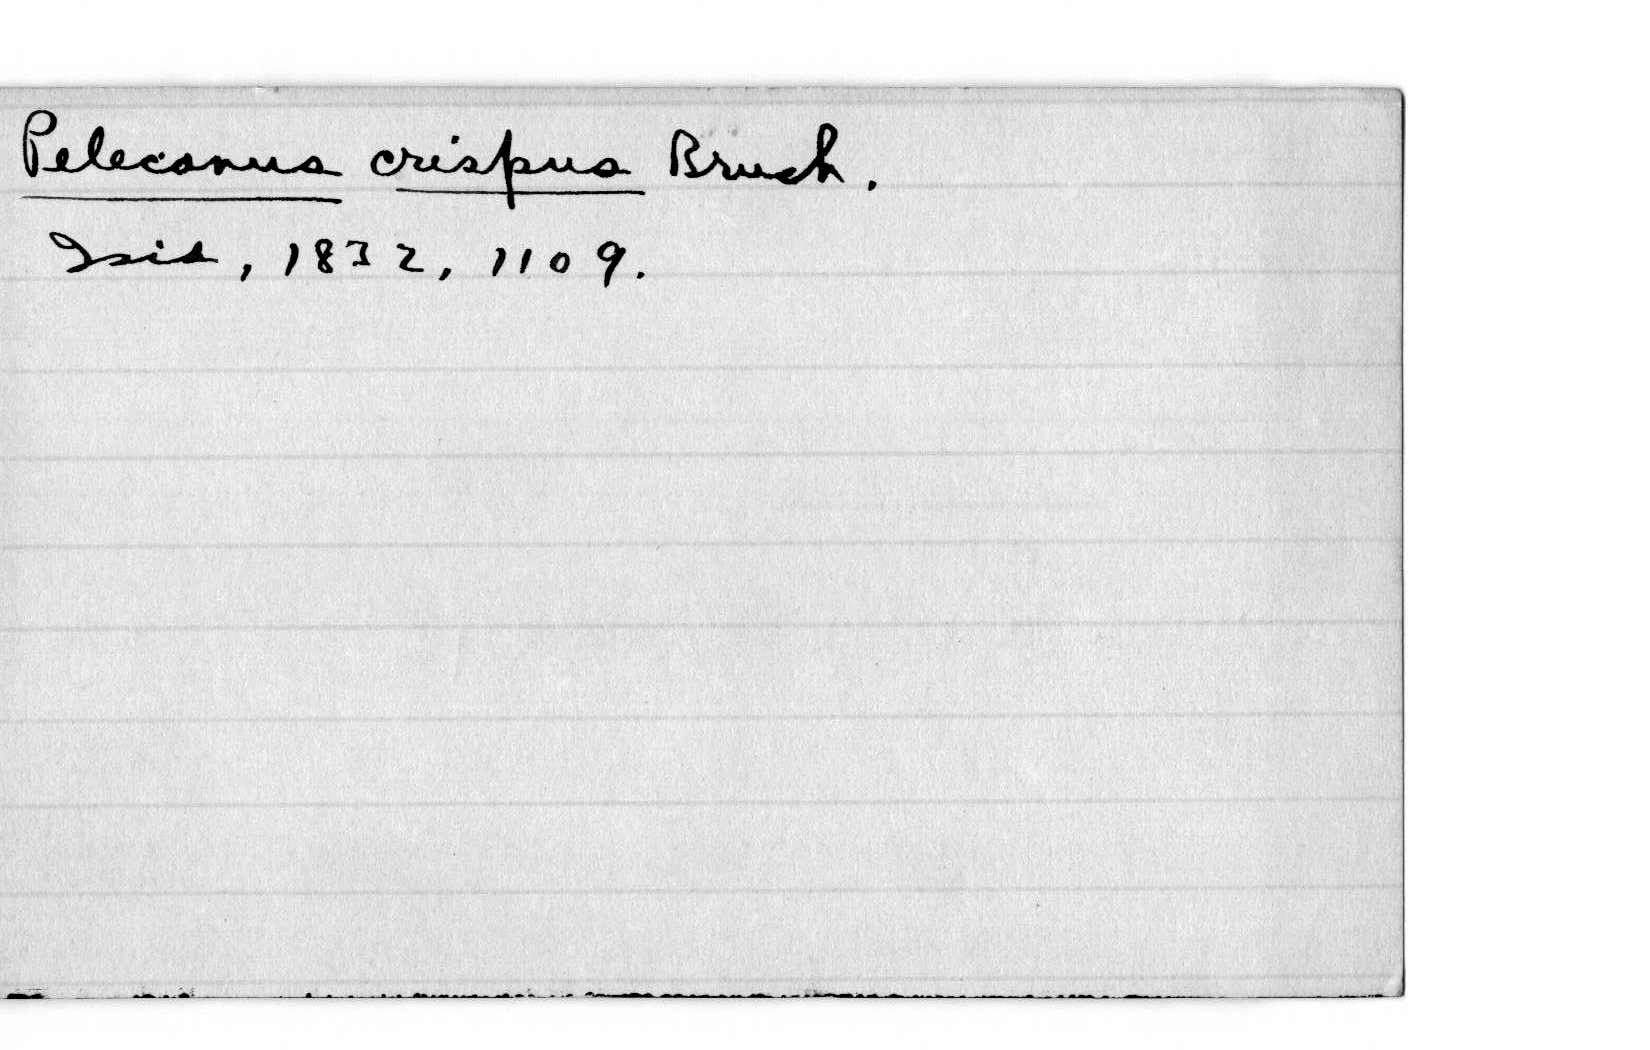 Pelecanus crispus Bruch.
Isis, 1832, 1109.